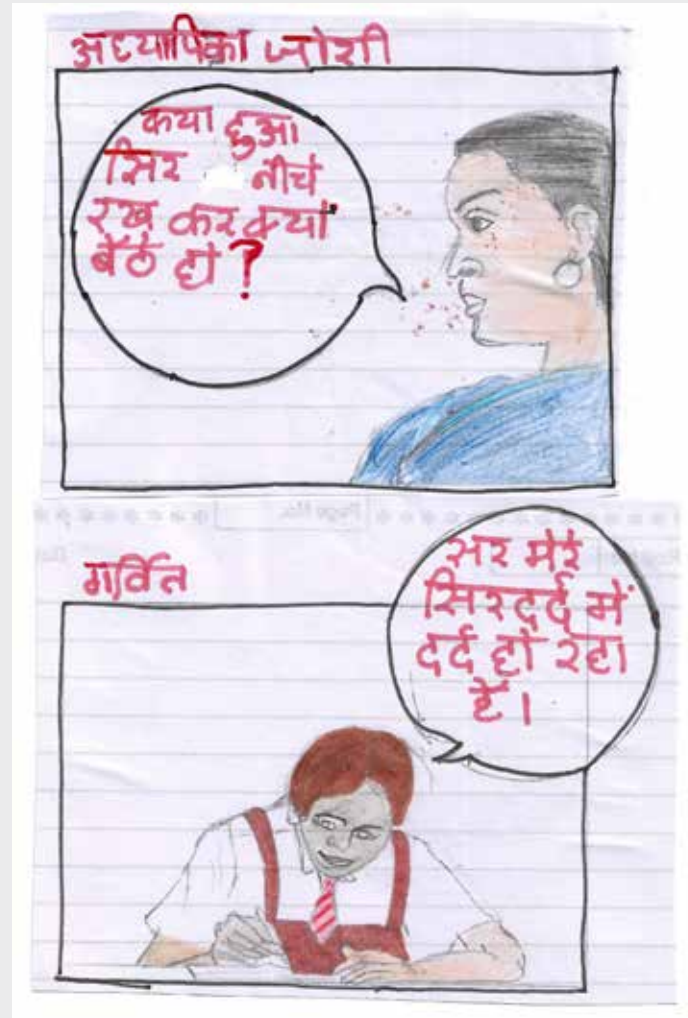 अध्यापिका जोशी
क्या हुआ
सिर नीचे
रख कर क्यों
बैठे हो?
गर्वित
सर मेरे
सिरदर्द में
दर्द हो रहा
है।